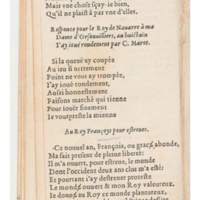 Mais vne chose sçay-ie bien,
Qu'il ne plaist à pas vne d'elles.
Response pour le Roy de Nauarre à ma
Dame
I'ay ioué rondement par C. Marot.
Si la queuë ay coupée
Au ieu si nettement
Point ne vous ay trompée,
I'ay ioué rondement,
Aussi honnestement
Faisons marché qui tienne
Pour iouer finement
Ie vous preste la mienne
Au Roy Françoys pour estrenes.
Ce nouuel an, François, ou grace abonde,
Ma fait present de pleine liberté:
Il m'a ouuert, pour estrene, le monde
Dont l'occident deux ans clos m'a esté:
Et pourtant i'ay
Le monde ouuert & mon Roy valeureux.
Ie donne du monde au Roy
Et